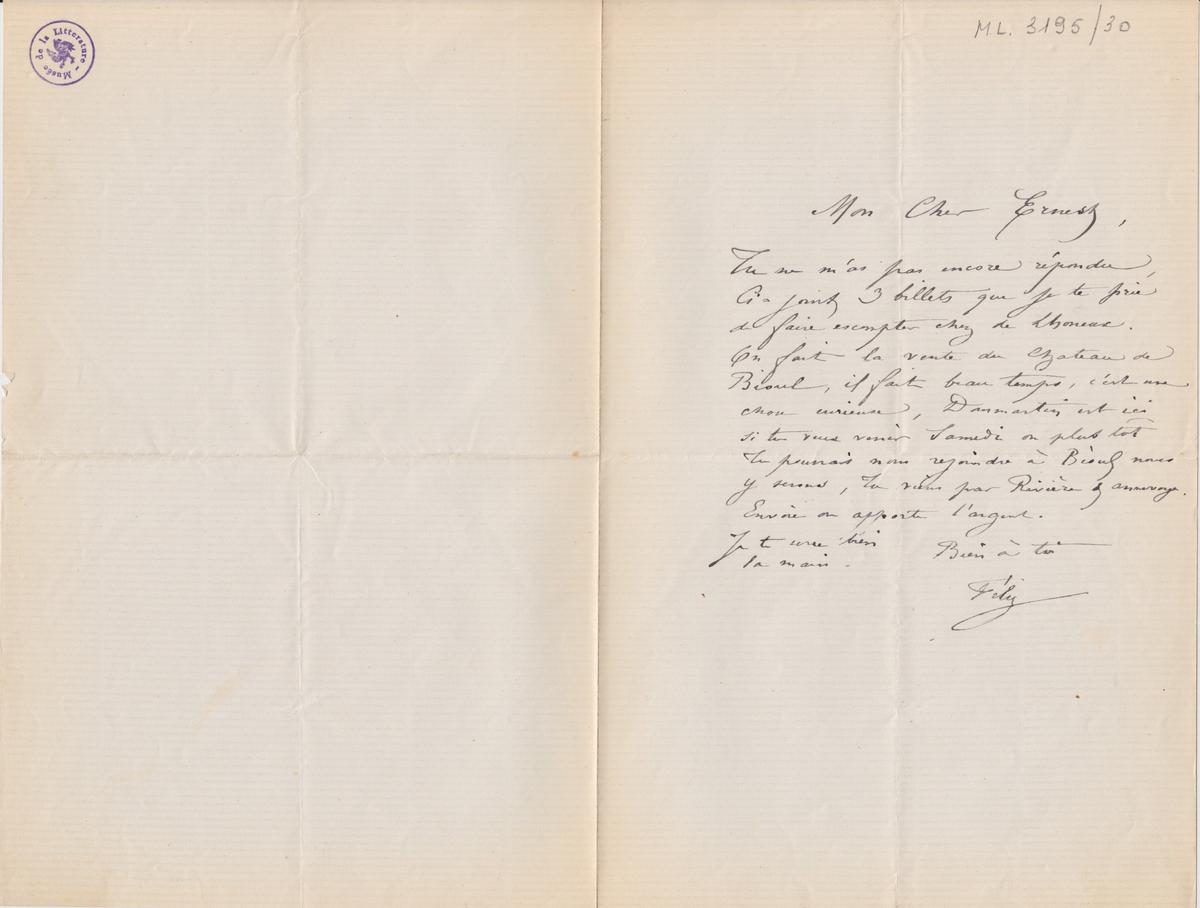 Musée de la Littérature
M.L. 3195/30
Mon Cher Ernest,
Tu ne m'as pas encore répondu,
Ci-joint 3 billets que je te prie
de faire escompter chez de Lhoneux.
On fait la vente du Chateau de
Bioul, il fait beau temps, c'est une
chose curieuse, Danmartin est ici
si tu veux venir Samedi ou plus tôt
tu pourrais nous rejoindre à Bioul nous
y serons, tu viens par Rivière & annevoye.
Envoie ou apporte l'argent.
Je te serre bien
la main.
Bien à toi
Félix